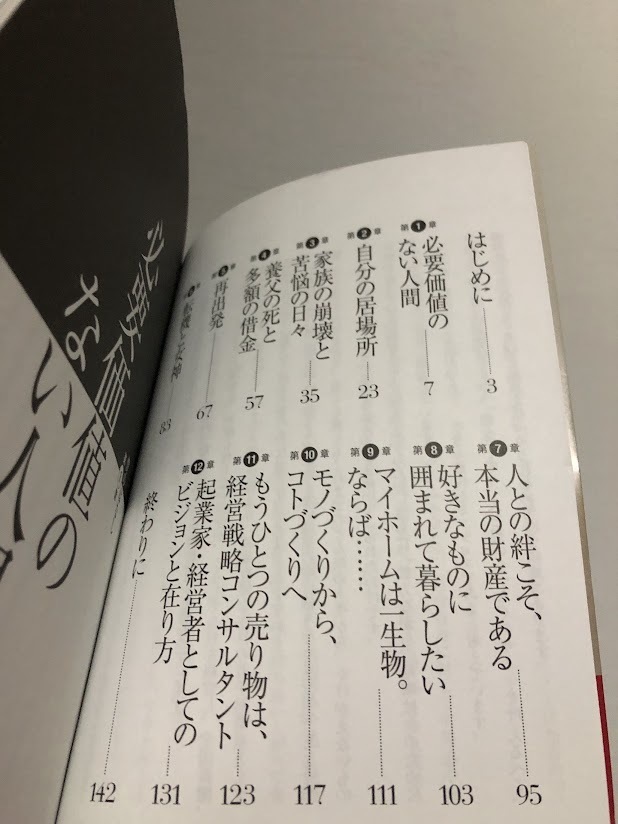 はじめに
3
第1章
必要価値の
ない人間
7
第2章
自分の居場所
23
第3章
家族の崩壊と
苦悩の日々
35
第4章
養父の死と
多額の借金
57
第5章
再出発
67
転機と女神
83
第7章
人との絆こそ、
本当の財産である
95
第8章
好きなものに
囲まれて暮らしたい
103
第9章
マイホームは一生物。
ならば……
111
第10章
モノづくりから、
コトづくりへ
117
第11章
もうひとつの売り物は、
経営戦略コンサルタント
123
第12章
起業家・経営者としての
ビジョンと在り方
131
終わりに
142
必要価値の